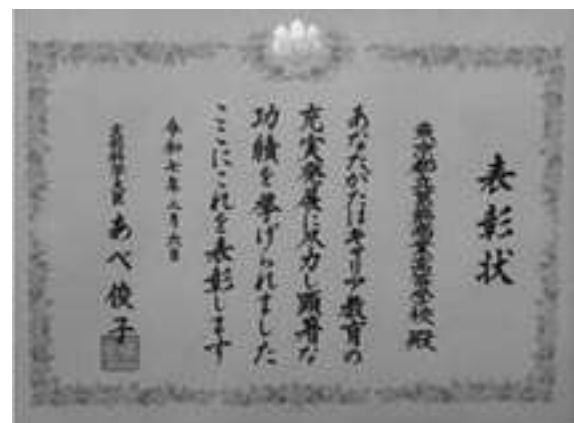 表彰状
東京都立
商業高等学校殿
あなたがたはキャリア教育の
充実発展に尽力し顕著な
功績を挙げられました
ここにこれを表彰します
令和七年二月六日
文部科学大臣 あべ俊子